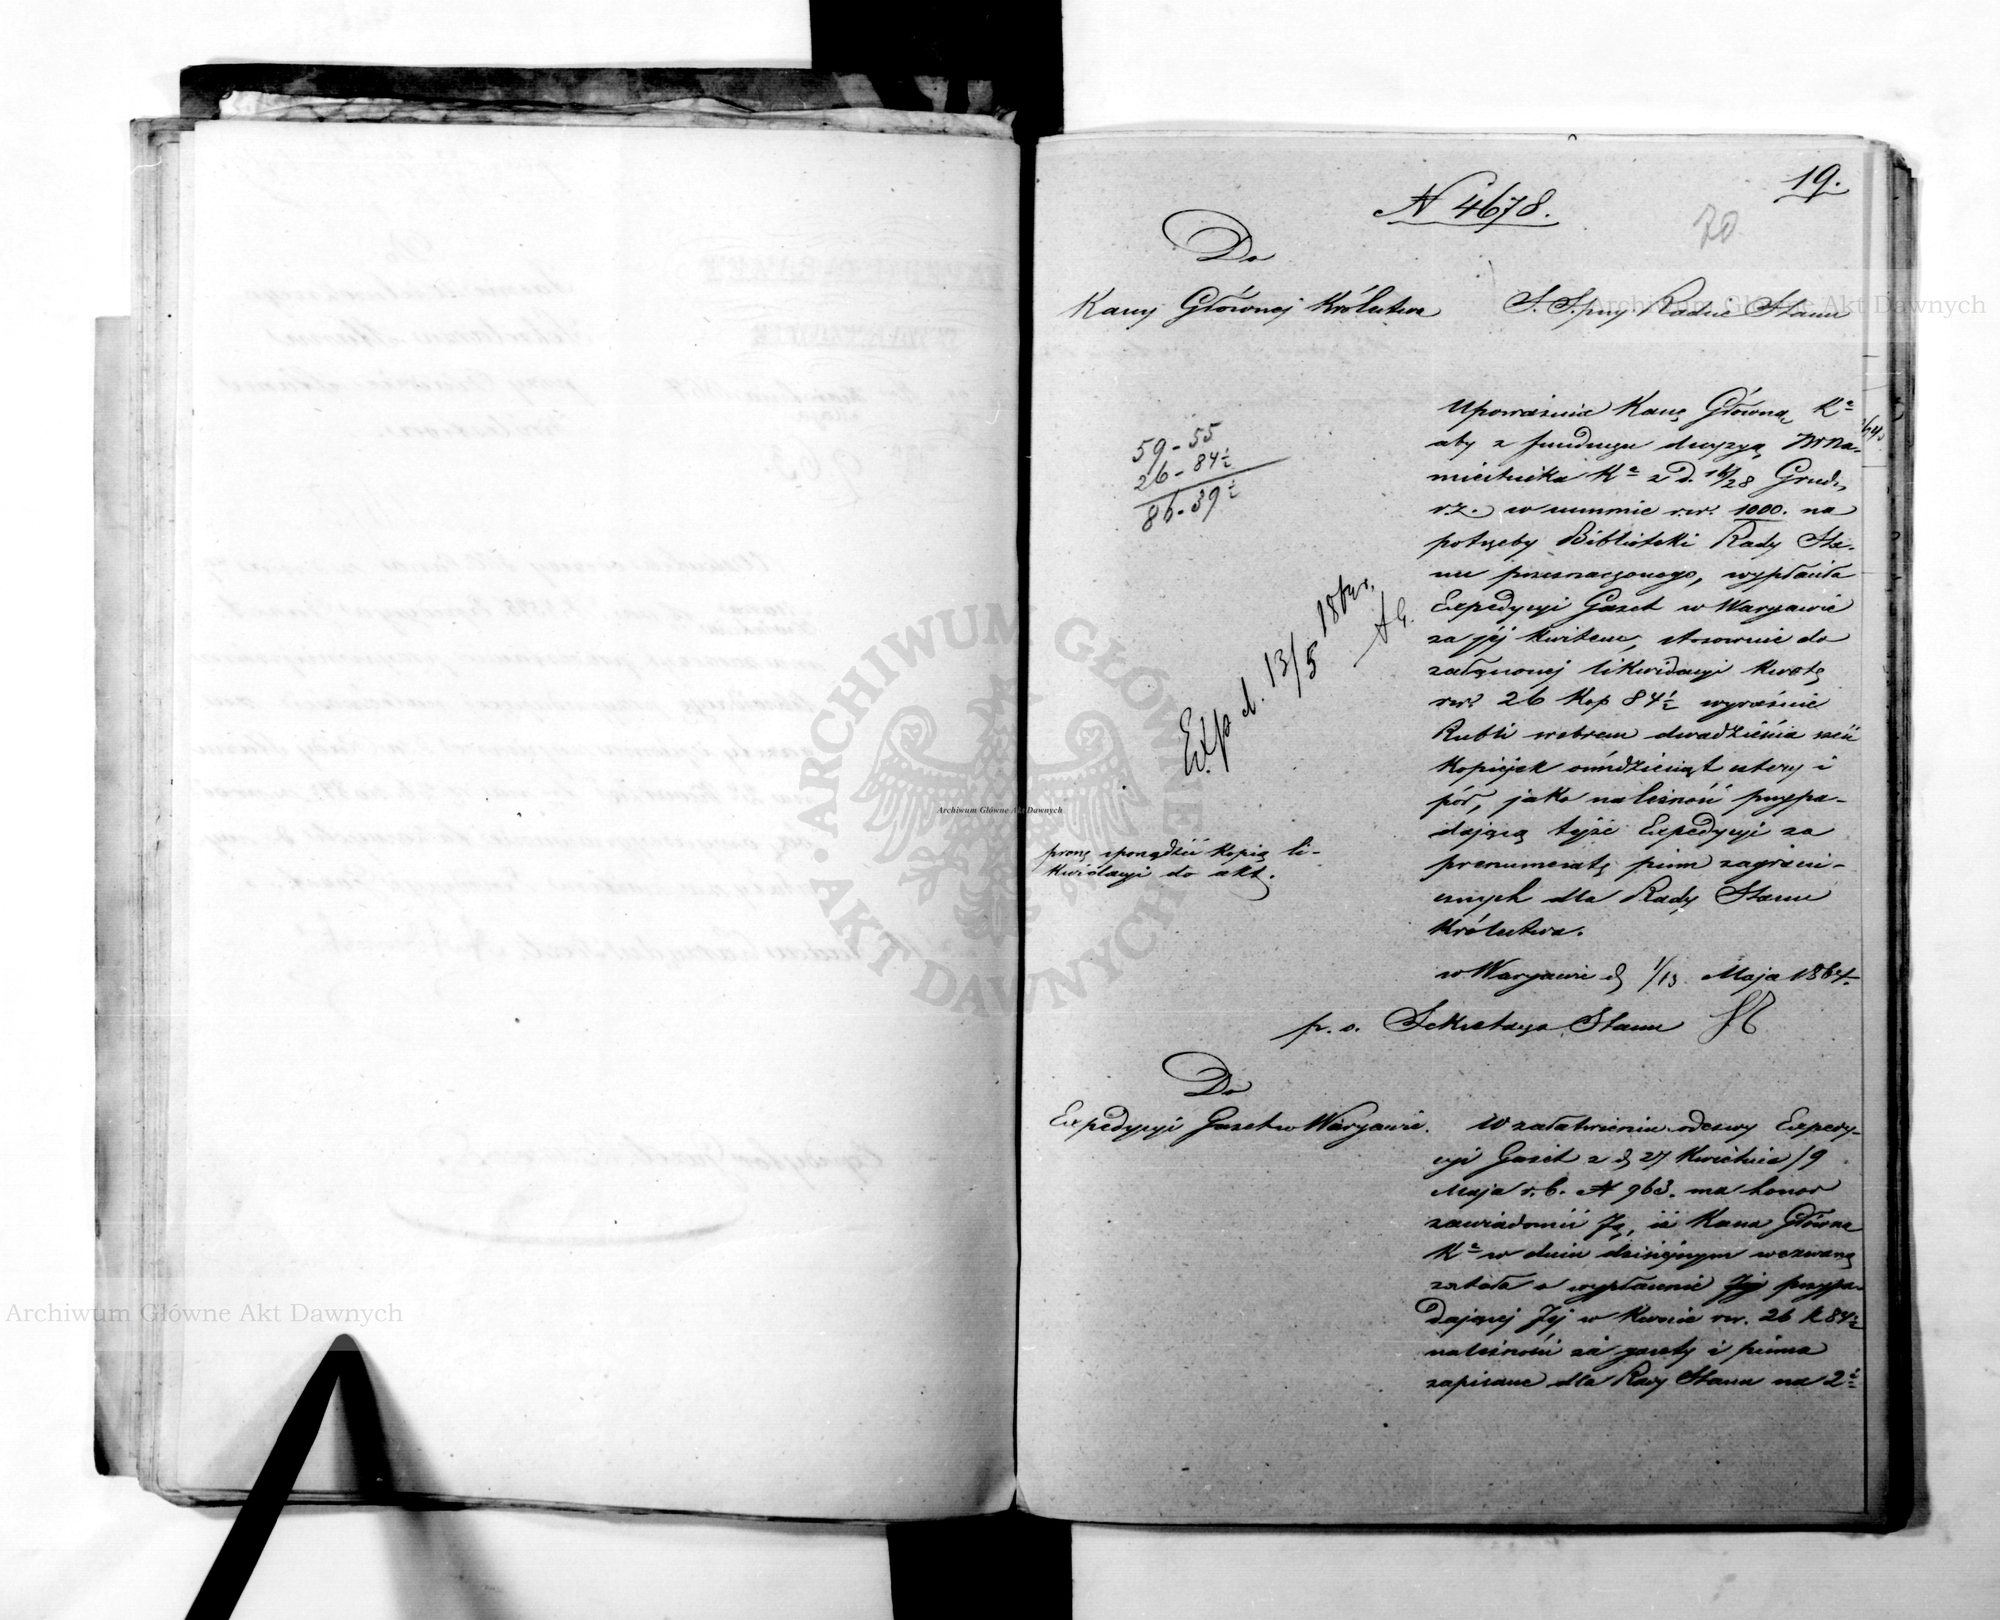 19.
N 4678.
70
Do
Kassy Głównej Królestwa
S. S. przy Radzie Stanu
59 - 55
26 - 84½
86 - 39½
Upoważnia Kassę Główną Kª
aby z funduszu decyzyą JW Na-
miestnika Kª z D. 16/28 Grud.
r.z. w summie rsr. 1000. na
potrzeby Biblioteki Rady Sta-
nu przeznaczonego, wypłaciła
Expedycyi Gazet w Warszawie
za jéj kwitem, stosownie do
załączonej likwidacyi kwotę
rsr. 26 kop 84½ wyraźnie
Rubli srebrem dwadzieścia sześć
kopiejek ośmdziesiąt cztery i
pół, jako należność przypa-
dającą tejże Expedycyi za
prenumeratę pism zagrani-
cznych dla Rady Stanu
Królestwa.
w Warszawie d. 1/13 Maja 1864.
p. o. Sekretarza Stanu
Exp d. 13/5 1864 r.
proszę sporządzić kopią li-
kwidacyi do akt.
Do
Expedycyi Gazet w Warszawie.
W załatwieniu odezwy Expedy-
cyi Gazet z d. 27 Kwietnia/9
Maja r.b. N 963. ma honor
zawiadomić Ją, iż Kassa Główna
Kª w dniu dzisiejszym wezwaną
została o wypłacenie Jej przypa-
dającej Jej w kwocie rsr. 26 k 84½
należności za gazety i pisma
zapisane dla Rady Stanu na 2ᵉ
ARCHIWUM GŁÓWNE AKT DAWNYCH
Archiwum Główne Akt Dawnych
Archiwum Główne Akt Dawnych
Archiwum Główne Akt Dawnych